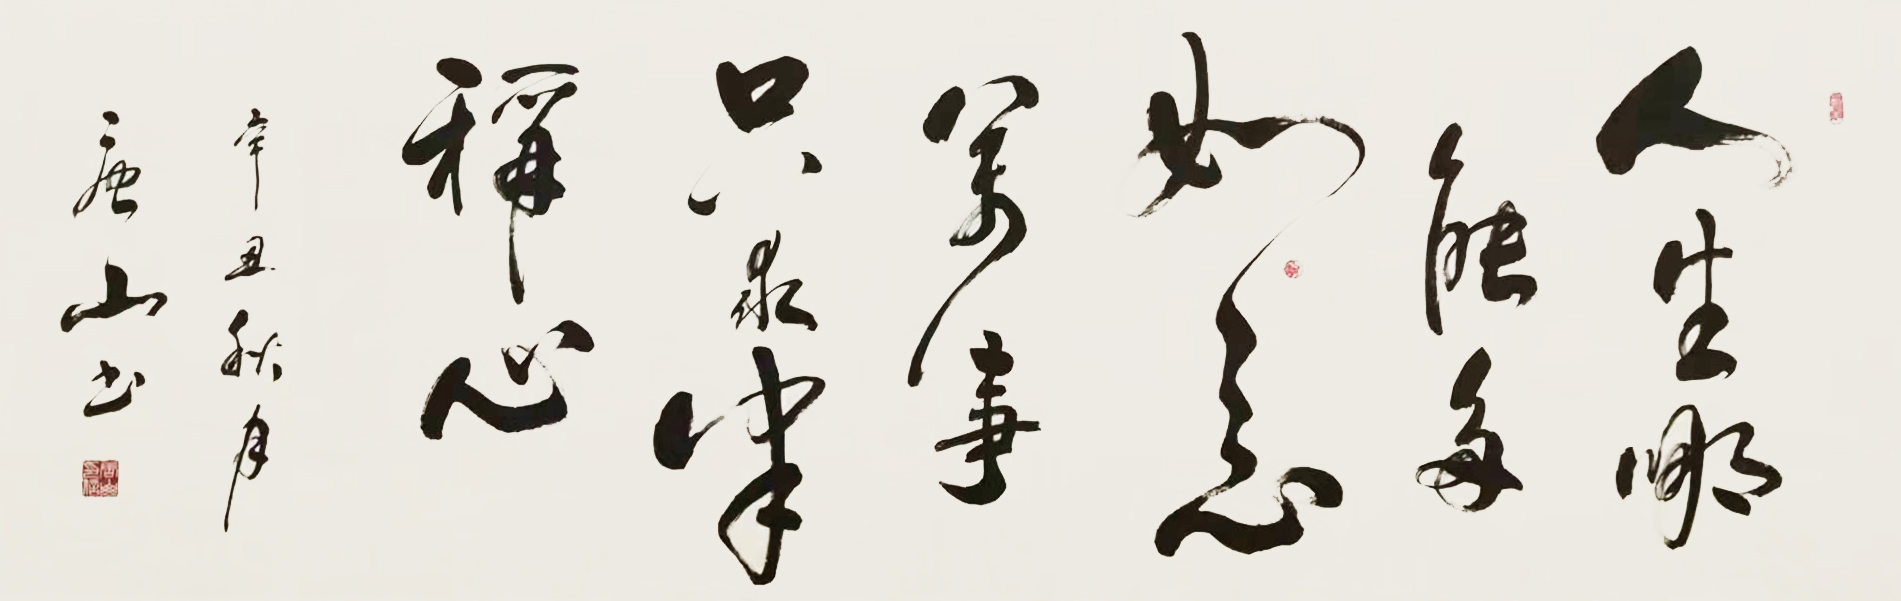 人生哪
能多
如意
萬事
只求半
稱心
辛丑秋月
唐山书